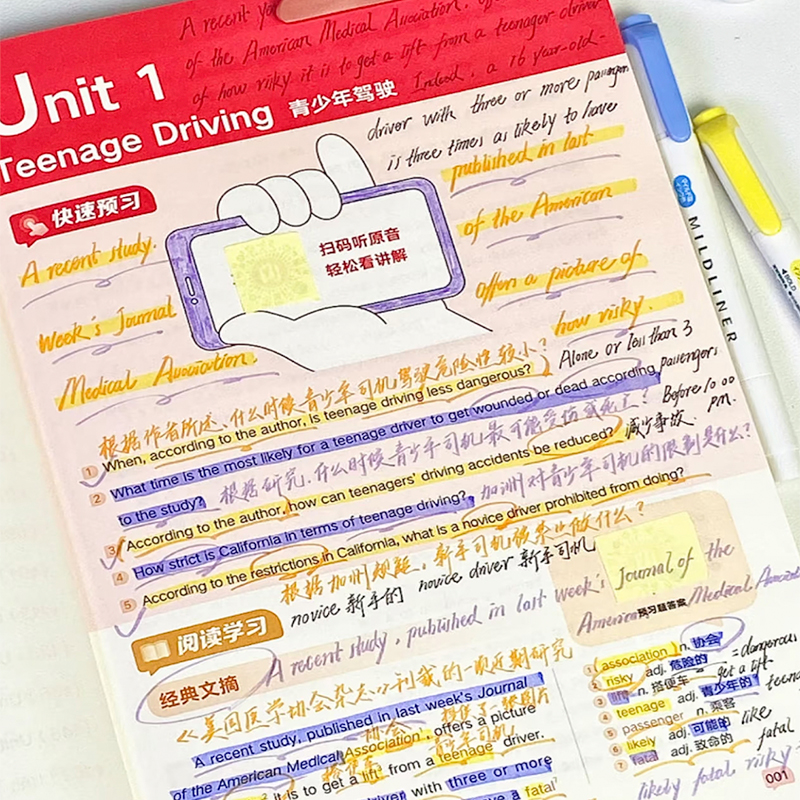 A recent
of the American Medical Association,
of how risky it is to get a lift from a teenager driver.
Indeed, a 16 year-old-
Unit 1
Teenage Driving 青少年驾驶
driver with three or more passengers
is three times as likely to have
published in last
快速预习
扫码听原音
轻松看讲解
of the American
A recent study.
offers a picture of
Week's Journal
how risky.
Medical Association.
根据作者所述,什么时候青少年司机驾驶危险性较小?
Alone or less than 3
passengers
① When, according to the author, is teenage driving less dangerous?
② What time is the most likely for a teenage driver to get wounded or dead according
to the study?
根据研究,什么时候青少年司机最可能受伤或死亡?
Before 10:00
p.m.
③ According to the author, how can teenagers' driving accidents be reduced?
减少事故.
④ How strict is California in terms of teenage driving?
加洲对青少年司机的限制是什么?
⑤ According to the restrictions in California, what is a novice driver prohibited from doing?
根据加州规定,新手司机被禁止做什么?
novice 新手的 novice driver 新手司机
预习题答案
阅读学习
A recent study, published in last week's Journal of the
American Medical
经典文摘
《美国医学协会杂志》刊载的一项近期研究
A recent study, published in last week's Journal
协会 提供了一张图片
of the American Medical Association, offers a picture
搭便车 青少年司机
it is to get a lift from a teenage driver.
driver with three or more
have a fatal
① association n. 协会
② risky adj. 危险的 =dangerous
③ lift n. 搭便车 =get a lift
④ teenage adj. 青少年的
⑤ passenger n. 乘客
⑥ likely adj. 可能的 like
⑦ fatal adj. 致命的 fatal
likely fatal risky
001
MILDLINER